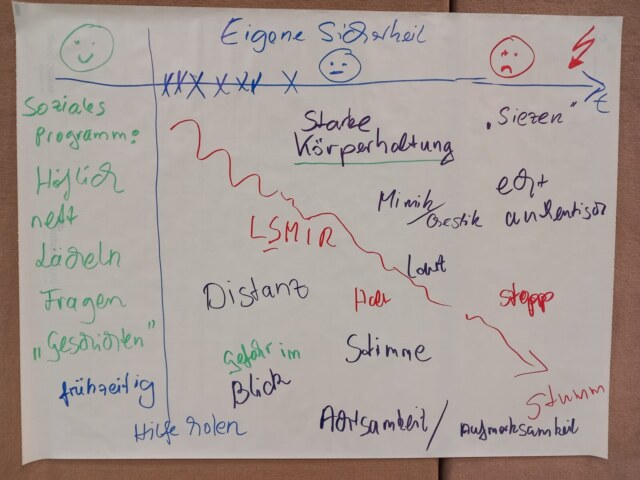 Eigene Sicherheit
XX X X XX X
t
Soziales
Programm:
Höflich
nett
Lächeln
Fragen
„Geschichten"
frühzeitig
Hilfe holen
LSMIR
Distanz
Gefahr im
Blick
Starke
Körperhaltung
Mimik/
Gestik
Laut
Stimme
Achtsamkeit/
Aufmerksamkeit
„Siezen"
echt
authentisch
stopp
Stumm